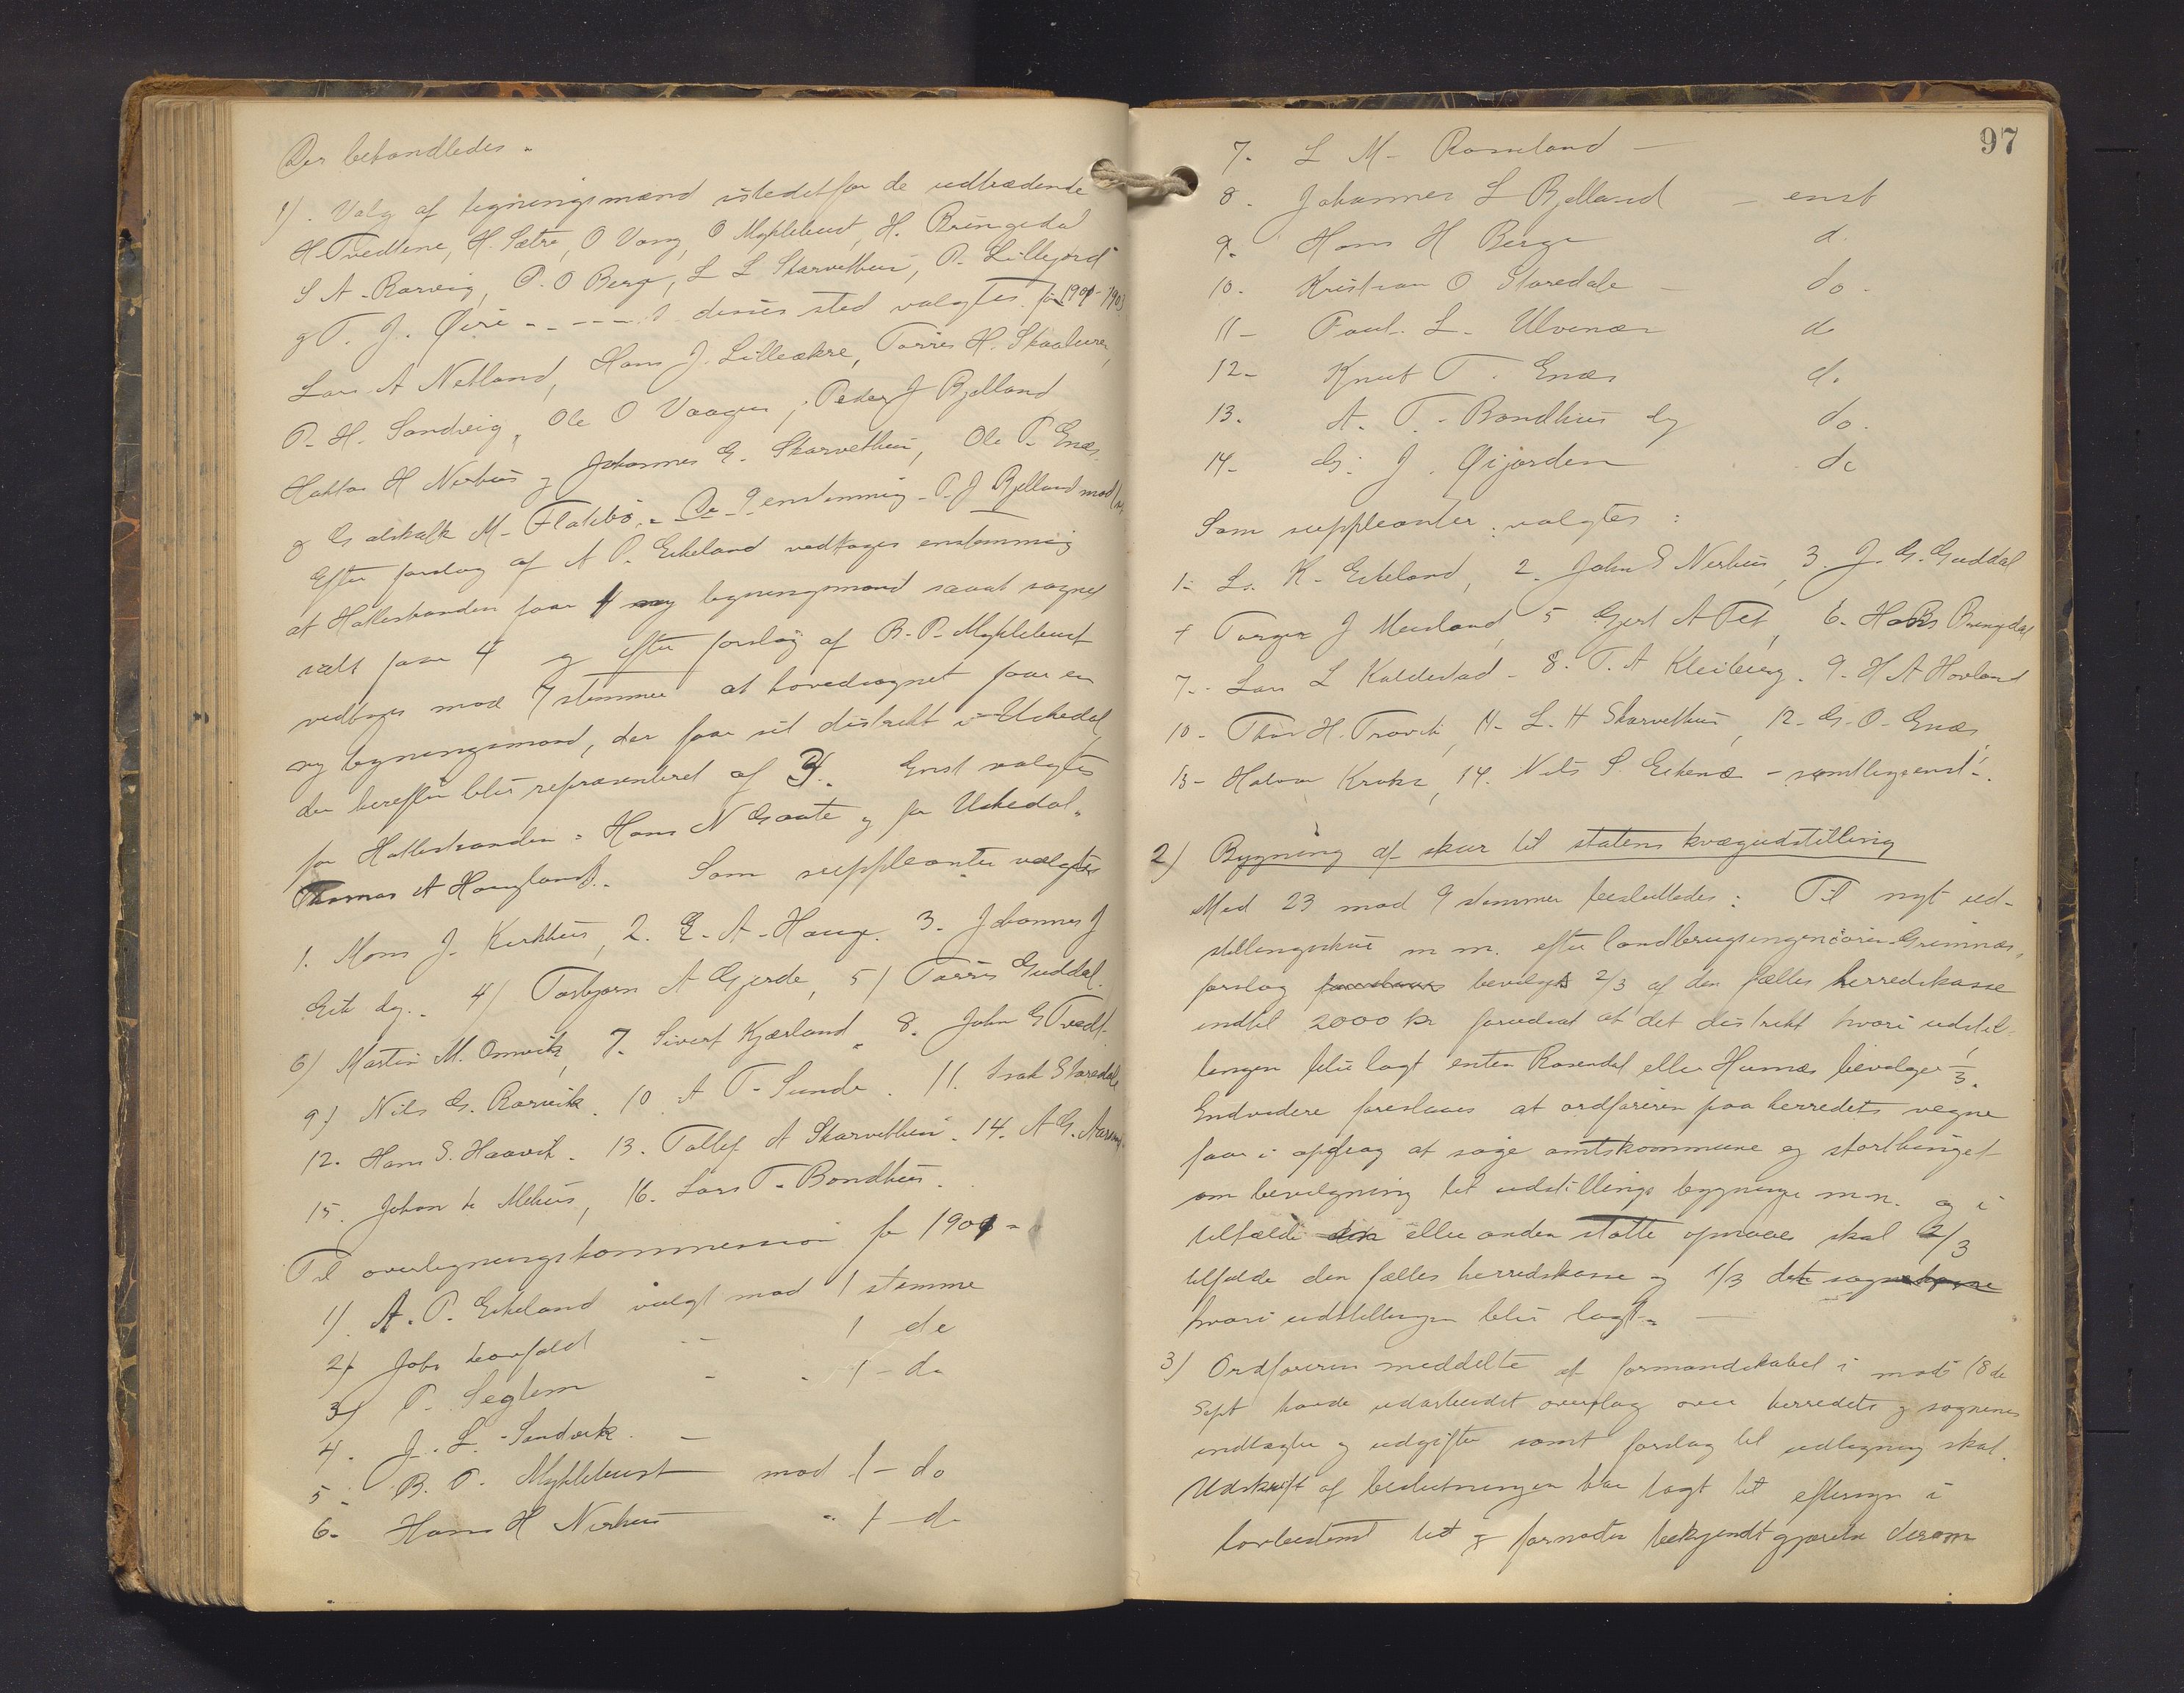 Der behandledes.
1). Valg af ligningsmænd istedetfor de udtrædende
H Tvedtene, H. Sætre, O Vang, O Myklebust, H. Bringedal
S A. Rørvig, P. O Berg, L L Skarvethun, P. Lillejord
og T. J. Øire - - - - - I disses sted valgtes for 1901-1903
Lars A Netland, Hans J. Lilleækre, Torris H. Skaaluren,
P. H. Sandvig, Ole O Vaage, Peder J Bjelland
Haktor H Nerhus og Johannes G. Skarvethun, Ole P. Enæs
og Gs alskalk M. Flatebø. De 9 enstemmig P. J Bjelland mod
Efter forslag af A P. Eikeland vedtages enstemmig
at Hattestranden faar 1 ny ligningsmand saaat sognet
ialt faar 4 og efter forslag af B. P. Myklebust
vedtoges mod 7 stemmer at hovedsognet faar en
ny ligningsmand, der faar sit distrikt i Uskedal,
der herefter blir repræsenteret af 3. Enst valgtes
for Hattestranden: Hans N Gaute og for Uskedal
Thomas A Haugland. Som suppleanter valgtes
1. Mons J. Kirkhus, 2. E. A. Hauge. 3. Johannes J
Eik dy. 4) Torbjørn A Gjerde, 5) Torris Guddal.
6) Martin M. Omvik, 7. Sivert Kjærland 8. John G Tvedt.
9) Nils G. Rørvik. 10 A T. Sunde. 11. Isak Staredale
12. Hans S. Haavik. 13. Tollef A Skarvethun. 14. A G.
15. Johan Mehus, 16. Lars T. Bondhus.
Til overligningskommission for 1901 -
1). A. P. Eikeland valgt mod 1 stemme
2) Johs Løvfald 1 do
3) P. Seglem - 1 - do
4. J. L. Sandvik -
5 - B. P. Myklebust mod 1 - do
6. Hans H Nerhus " 1 - do
97
7. L M. Rosseland -
8. Johannes L Bjelland - enst
9. Hans H Berge d.
10. Kristian O Staredale - do.
11 - Poul. L. Ulvenæs do
12 - Knut T. Enæs d.
13. A. T. Bondhus dy do.
14 - G. J. Øijorden do
Som suppleanter valgtes:
1 - Ls. K. Eikeland, 2. John S Nerhus, 3. J. G. Guddal
4 Torger J Meisland, 5 Gjert A Tet, 6. Hans Bringdal
7 - Lars L Kaldestad - 8. T. A Kleiberg. 9. H A Hovland
10 - Thor H. Travik, 11 - L. H Skarvethus, 12 - G. O. Enæs,
13 - Halvor Kroka, 14. Nils S. Eikenæs - samtlige enst.
2) Bygning af skur til statens kvægudstilling
Med 23 mod 9 stemmer besluttedes: Til nyt ud-
stillingsskur m m. efter landbrugsingeniøren Grimnæs,
forslag foreslaaes bevilges 2/3 af den fælles herredskasse
indtil 2000 kr forudsat at det distrikt hvori udstil-
lingen blir lagt enten Rosendal eller Husnæs bevilger 1/3.
Endvidere foreslaaes at ordføreren paa herredets vegne
faar i opdrag at søge amtskommune og storthinget
om bevilgning til udstillings bygninger m. m. og i
tilfælde den eller anden støtte opnaaes skal 2/3
tilfalde den fælles herredskasse og 1/3 det sognekasse
hvori udstillingen blir lagt. -
3) Ordføreren meddelte at formandskabet i møde 18 de
Sept havde udarbeidet overslag over herredets og sognenes
indtægter og udgifter samt forslag til udligning skat.
Udskrift af beslutningen har lagt til eftersyn i
lovbestemt tid og fornøden bekjendtgjørelse derom